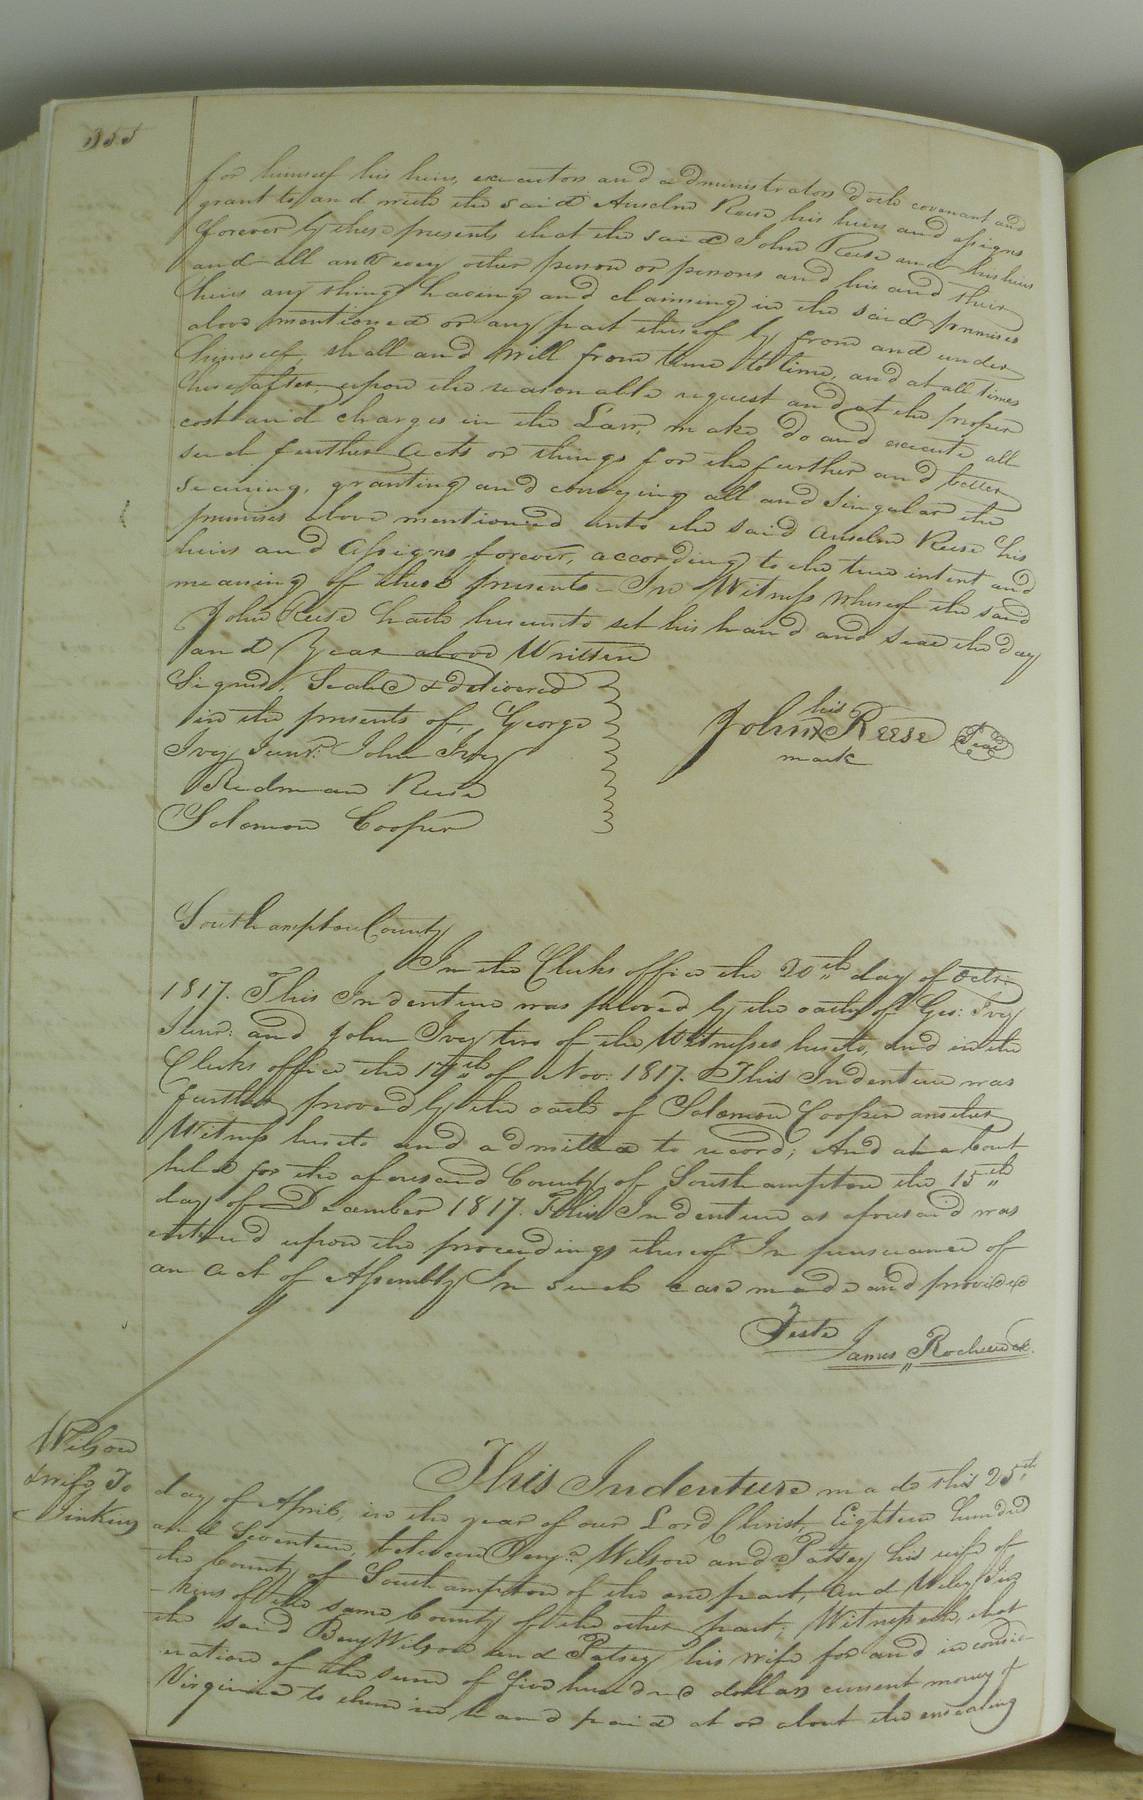 355
for himself his heirs, executors and administrators doth covenant and
grant to and with the said Anselm Reese his heirs and assigns
forever by these presents that the said John Reese and his heirs
and all and every other person or persons and his and their
heirs any thing having and claiming in the said premises
above mentioned or any part thereof by from and under
himself, shall and will from time to time, and at all times
hereafter, upon the reasonable request and at the proper
cost and charges in the Law, make do and execute all
such further acts or things for the further and better
securing, granting and conveying all and Singular the
premises above mentioned unto the said Anselm Reese his
heirs and Assigns forever, according to the true intent and
meaning of these presents - In Witness Whereof the said
John Reese hath hereunto set his hand and seal the day
and Year above Written
Signed, Sealed & delivered
in the presents of, George
Ivey Junr. John Ivey
Redman Reese
Solomon Cooper
his
John X Reese Seal
mark
Southampton County
In the Clerks office the 20th day of Octr.
1817. This Indenture was proved by the oaths of Geo: Ivey
Junr: and John Ivey two of the Witnesses hereto, And in the
Clerks office the 17th of Nov: 1817. This Indenture was
further proved by the oath of Solomon Cooper another
Witness hereto and admitted to record; And at a Court
held for the aforesaid County of Southampton the 15th
day of December 1817. This Indenture as aforesaid was
entered upon the proceedings thereof In pursuance of
an act of Assembly In such case made and provided
Teste
James Rochelle Ck.
Wilson
& wife To
Jinkins
This Indenture made this 25th
day of April, in the year of our Lord Christ, Eighteen hundred
and Seventeen, between Benja. Wilson and Patsey his wife of
the County of Southampton of the one part, and Wiley Jin
-kens of the same County of the other part; Witnesseth, that
the said Benj Wilson and Patsey his wife for and in consid-
eration of the sum of five hundred dollars current money of
Virginia to them in hand paid at or about the ensealing